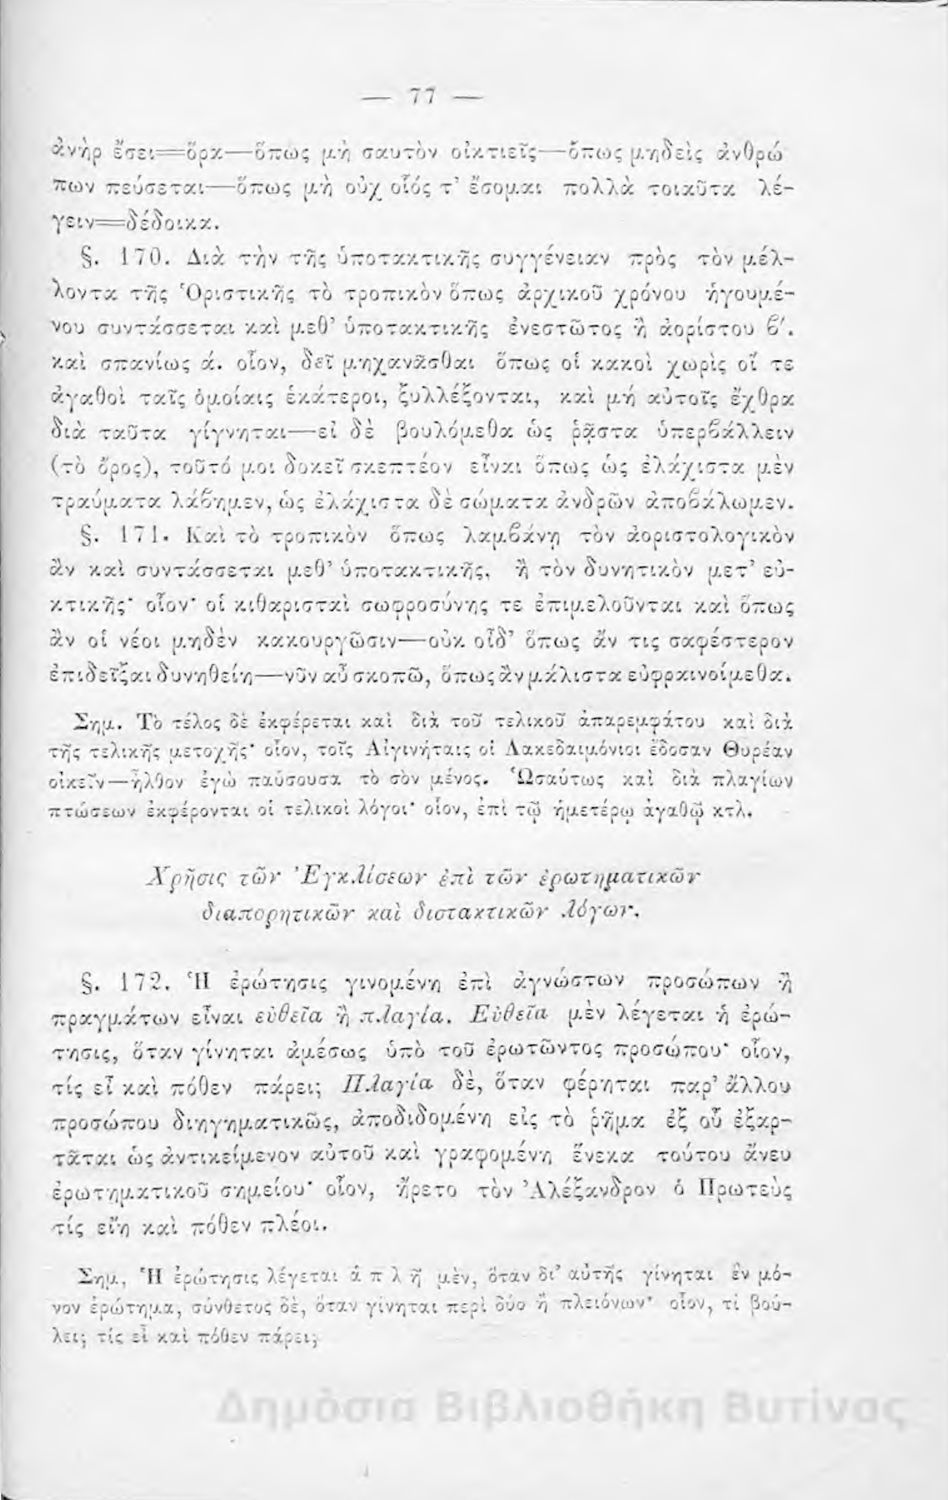 — 77 —
ἀνὴρ ἔσει=ὅρα—ὅπως μὴ σαυτὸν οἰκτιεῖς—ὅπως μηδεὶς ἀνθρώ
πων πεύσεται—ὅπως μὴ οὐχ οἷός τ' ἔσομαι πολλὰ τοιαῦτα λέ-
γειν=δέδοικα.
§. 170. Διὰ τὴν τῆς ὑποτακτικῆς συγγένειαν πρὸς τὸν μέλ-
λοντα τῆς Ὁριστικῆς τὸ τροπικὸν ὅπως ἀρχικοῦ χρόνου ἡγουμέ-
νου συντάσσεται καὶ μεθ' ὑποτακτικῆς ἐνεστῶτος ἢ ἀορίστου β′.
καὶ σπανίως ά. οἷον, δεῖ μηχανᾶσθαι ὅπως οἱ κακοὶ χωρὶς οἵ τε
ἀγαθοὶ ταῖς ὁμοίαις ἑκάτεροι, ξυλλέξονται, καὶ μή αὐτοῖς ἔχθρα
διὰ ταῦτα γίγνηται—εἰ δὲ βουλόμεθα ὡς ῥᾷστα ὑπερβάλλειν
(τὸ ὄρος), τοῦτό μοι δοκεῖ σκεπτέον εἶναι ὅπως ὡς ἐλάχιστα μὲν
τραύματα λάβημεν, ὡς ἐλάχιστα δὲ σώματα ἀνδρῶν ἀποβάλωμεν.
§. 171. Καὶ τὸ τροπικὸν ὅπως λαμβάνῃ τὸν ἀοριστολογικὸν
ἂν καὶ συντάσσεται μεθ' ὑποτακτικῆς, ἢ τὸν δυνητικὸν μετ' εὐ-
κτικῆς· οἷον· οἱ κιθαρισταὶ σωφροσύνης τε ἐπιμελοῦνται καὶ ὅπως
ἂν οἱ νέοι μηδὲν κακουργῶσιν—οὐκ οἶδ' ὅπως ἄν τις σαφέστερον
ἐπιδεῖξαι δυνηθείη—νῦν αὖ σκοπῶ, ὅπως ἂν μάλιστα εὐφραινοίμεθα.
Σημ. Τὸ τέλος δὲ ἐκφέρεται καὶ διὰ τοῦ τελικοῦ ἀπαρεμφάτου καὶ διὰ
τῆς τελικῆς μετοχῆς· οἷον, τοῖς Αἰγινήταις οἱ Λακεδαιμόνιοι ἔδοσαν Θυρέαν
οἰκεῖν—ἦλθον ἐγὼ παύσουσα τὸ σὸν μένος. Ὡσαύτως καὶ διὰ πλαγίων
πτώσεων ἐκφέρονται οἱ τελικοὶ λόγοι· οἷον, ἐπὶ τῷ ἡμετέρῳ ἀγαθῷ κτλ.
Χρῆσις τῶν Ἐγκλίσεων ἐπὶ τῶν ἐρωτηματικῶν
διαπορητικῶν καὶ διστακτικῶν λόγων.
§. 172. Ἡ ἐρώτησις γινομένη ἐπὶ ἀγνώστων προσώπων ἢ
πραγμάτων εἶναι εὐθεῖα ἢ πλαγία. Εὐθεῖα μὲν λέγεται ἡ ἐρώ-
τησις, ὅταν γίνηται ἀμέσως ὑπὸ τοῦ ἐρωτῶντος προσώπου· οἷον,
τίς εἶ καὶ πόθεν πάρει; Πλαγία δὲ, ὅταν φέρηται παρ' ἄλλου
προσώπου διηγηματικῶς, ἀποδιδομένη εἰς τὸ ῥῆμα ἐξ οὗ ἐξαρ-
τᾶται ὡς ἀντικείμενον αὐτοῦ καὶ γραφομένη ἕνεκα τούτου ἄνευ
ἐρωτηματικοῦ σημείου· οἷον, ἤρετο τὸν Ἀλέξανδρον ὁ Πρωτεὺς
τίς εἴη καὶ πόθεν πλέοι.
Σημ. Ἡ ἐρώτησις λέγεται ἁπλῆ μὲν, ὅταν δι' αὐτῆς γίνηται ἓν μό-
νον ἐρώτημα, σύνθετος δὲ, ὅταν γίνηται περὶ δύο ἢ πλειόνων· οἷον, τί βού-
λει; τίς εἶ καὶ πόθεν πάρει;
Δημόσια Βιβλιοθήκη Βυτίνας